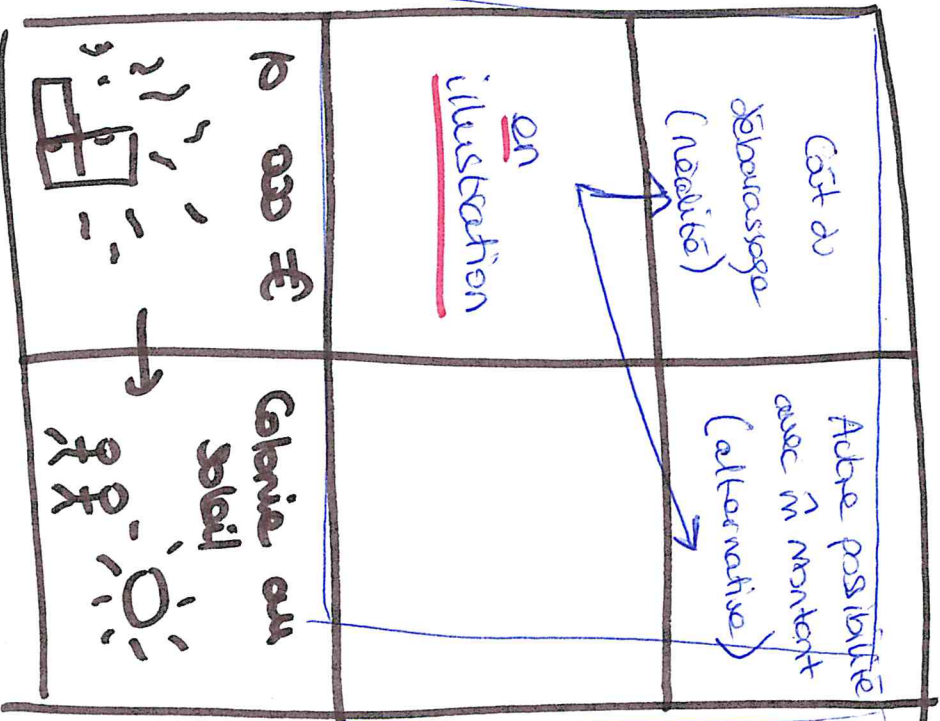 Coût du
débarassage
(réalité)
Autre possibilité
avec m̂ montant
(alternative)
en
illustration
10 000 €
Colonie au
soleil